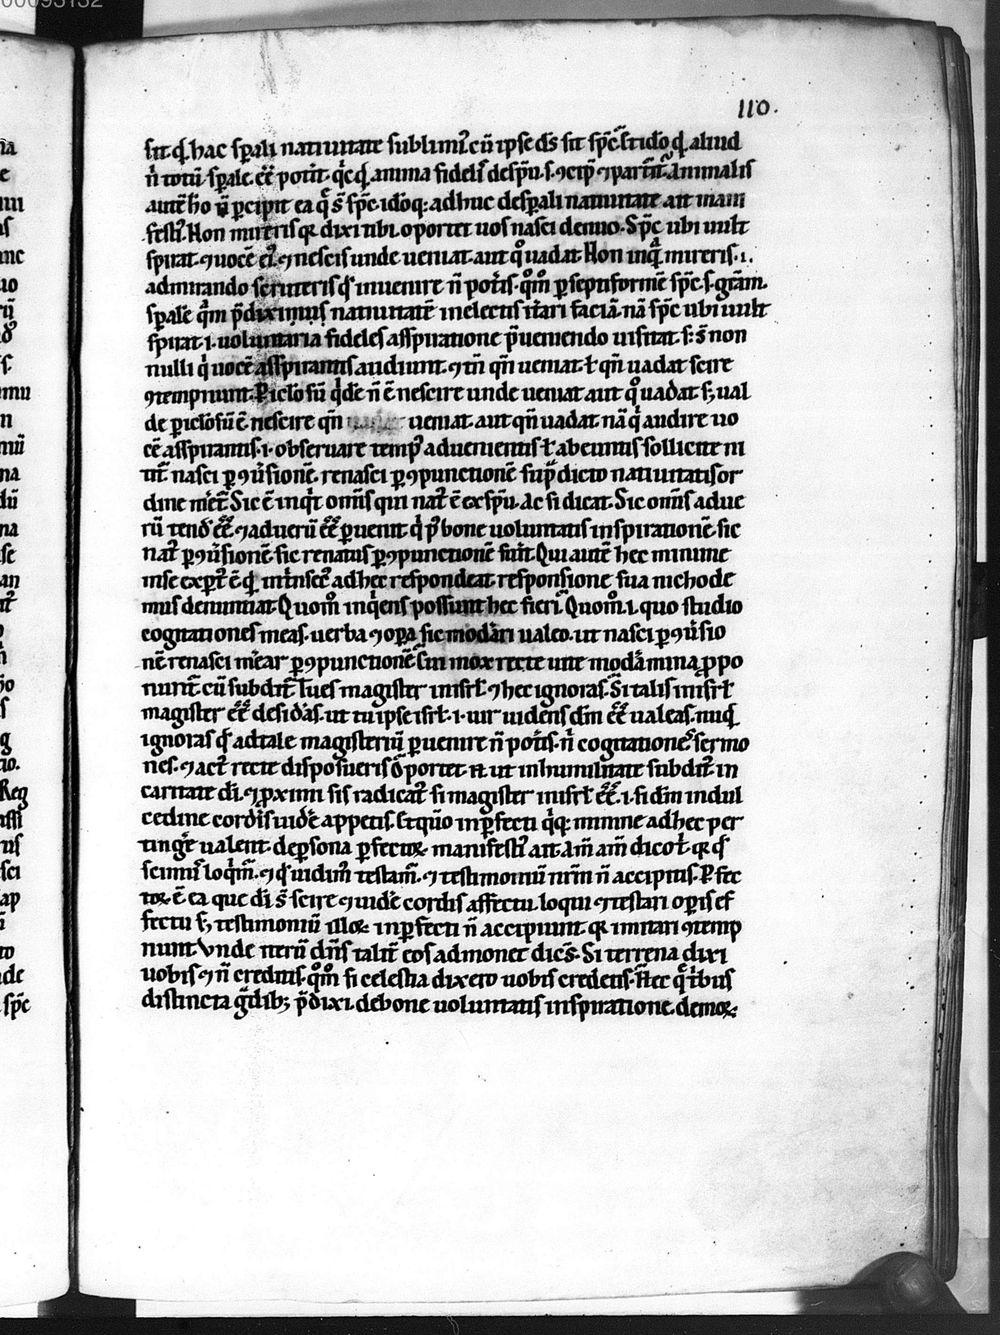 00093132
110.
sit q̄ hac sp̄ali natiuitate sublimꝰ cū ipse ds̄ sit sp̄c Et ido q̄ aliud
n̄ totū sp̄ale eē potit q̄c q̄ anima fidelis desp̄u. s. ꝯcip ꝯpartit Animalis
autē ho n̄ percipit ea q̄ s̄ sp̄c. idoq; adhuc desp̄ali natiuitate ait mani
festꝰ. Non mireris qꝛ dixi tibi. oportet uos nasci denuo. Sp̄c ubi uult
spirat. ⁊ uocē eiꝰ. ⁊ nescis unde ueniat. aut q̊ uadat Non inq̄ mireris. i.
admirando scruteris q̄ inuenire n̄ potis. qm̊ perseptiformē sp̄c. s. gr̄am.
sp̄ale q̄m p̄diximus natiuitatē in electis it̄ari faciā. nā sp̄c ubi uult
spirat. i. uoluntaria fideles asspiratione p̄ueniendo uisitat. s; s̄ non
nulli q̇ uocē asspirantis audiunt. ⁊ tn̄ qn̄ ueniat. ł qn̄ uadat scire
ꝯtempnunt. Piclosū q̇dē n̄ ē nescire unde ueniat aut q̊ uadat s; ual
de piclosū ē nescire qn̄ ueniat. aut qn̄ uadat. nā q̇ audire uo
cē asspirantis. i. obseruare tempꝰ aduenientis ł abeuntis sollicite ni
tit̄ nasci per ꝯuersionē. renasci per ꝯpunctionē sup̄dicto natiuitatis or
dine meret̄. Sic ē inq̇t omīs qui natꝰ ē ex sp̄u. Ac si dicat. Sic omīs adue
rū tendꝰ eē. ⁊ aduerū eē peruenit q̇ p̄ bone uoluntatis inspirationē sic
natꝰ per ꝯuersionē sic renatus per ꝯpunctionē fuit. Qui autē hec minime
inse expertꝰ ē q̄ intrinsecꝰ adhec respondeat. responsione sua nichode
mus denuntiat. Quom̊ inq̇ens possunt hec fieri. Quom̊. i. quo studio
cogitationes meas. uerba ⁊ opera sic modari ualeo. ut nasci per ꝯuersio
nē renasci mear per ꝯpunctionē. Cui mox recte uite modamina ppo
nunt̄ cū subdit̄. Tu es magister inisrl̄. ⁊ hec ignoras. Si talis inisrl̄
magister eē desidas. ut tu ipse isrl̄. i. uir uidens dm̄ eē ualeas. nūq̄
ignoras q̄ ad tale magisteriū peruenire n̄ potis. n̄ cogitationes sermo
nes. ⁊ actꝰ recte disposueris. Oportet g̊ ut in humilitate subditꝰ in
caritate di. ⁊ pximi sis radicatꝰ si magister inisrl̄ eē. i. si dm̄ in dul
cedine cordis uide appetis. Et quo inperfecti q̇q; minime adhec per
tinge ualent. depersona perfectoꝝ manifestꝰ ait. Am̄ am̄ dico t̊. qꝛ q̄
scimꝰ loq̇m̄. ⁊ q̄ uidimꝰ testam̄. ⁊ testimoniū nrm̄ n̄ accipitis. Perfec
toꝝ ē ea que di s̄ scire ⁊ uide cordis affectu. loqui ⁊ testari operis ef
fectu s; testimoniū illoꝝ inperfecti n̄ accipiunt. qꝛ imitari ꝯtemp
nunt. Vnde iterū dn̄s talit̄ eos admonet dicēs. Si terrena dixi
uobis. ⁊ n̄ creditis. qm̊ si celestia dixero uobis credetis. Nec q̄ tribus
distincta gradib; p̄dixi. debone uoluntatis inspiratione. demoꝝ